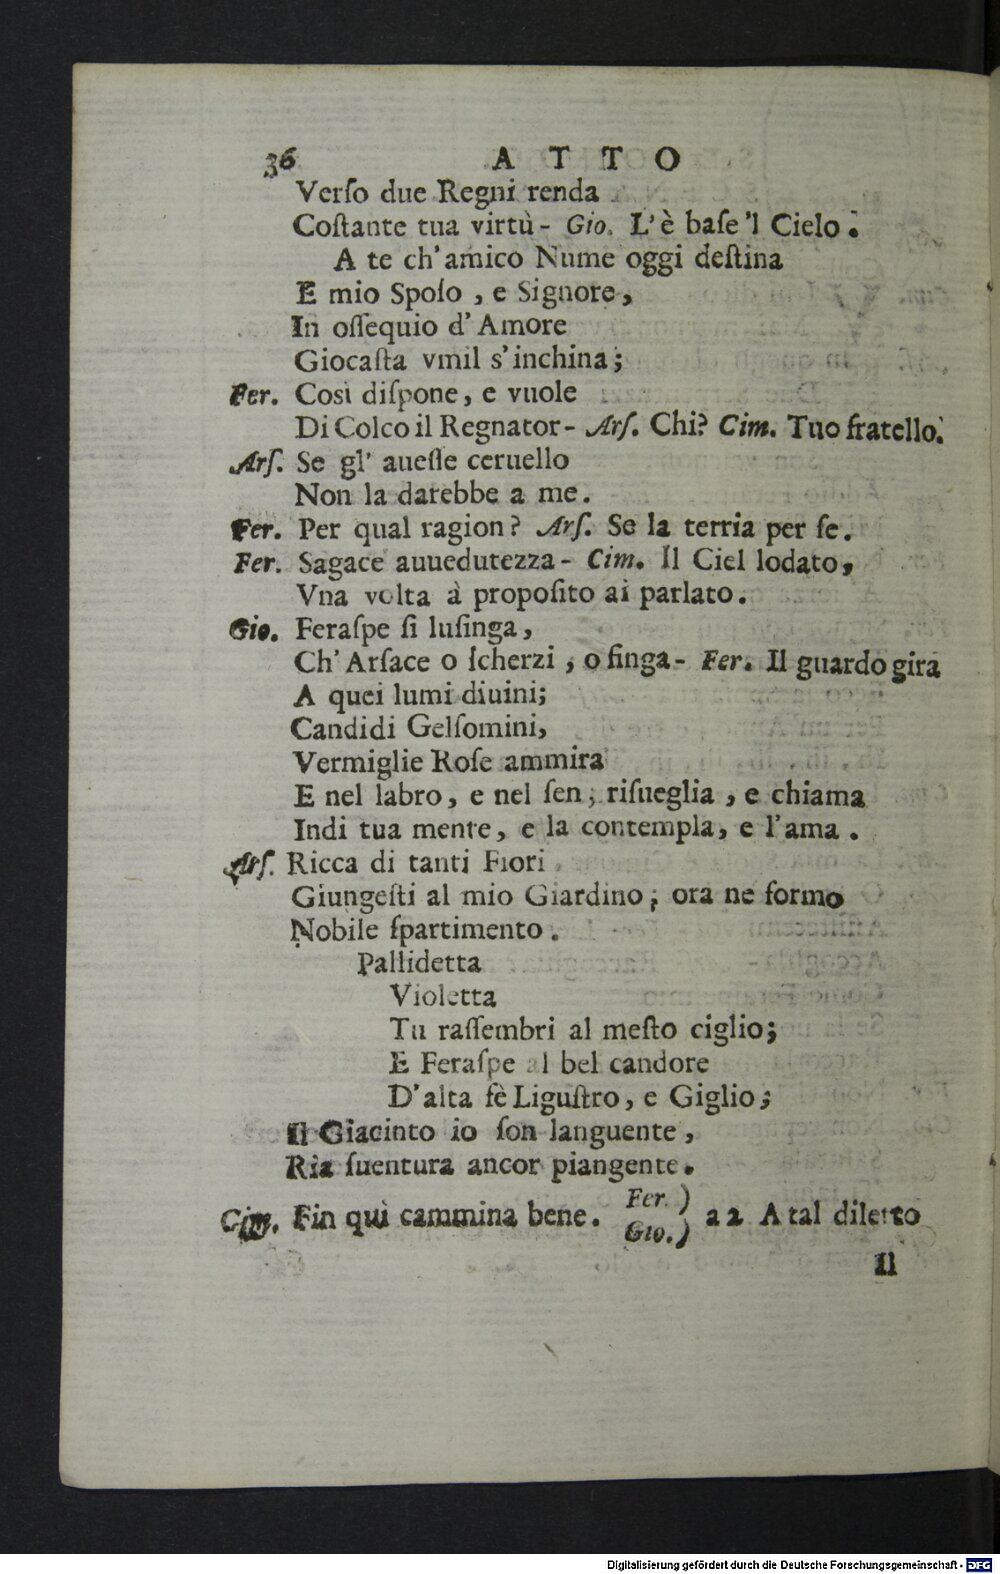 36 ATTO
Verſo due Regni renda
Coſtante tua virtù - Gio. L'è baſe 'l Cielo.
A te ch'amico Nume oggi deſtina
E mio Spoſo, e Signore,
In oſſequio d'Amore
Giocaſta vmil s'inchina;
Fer. Così diſpone, e vuole
Di Colco il Regnator - Arſ. Chi? Cim. Tuo fratello.
Arſ. Se gl' aueſſe ceruello
Non la darebbe a me.
Fer. Per qual ragion? Arſ. Se la terria per ſe.
Fer. Sagace auuedutezza - Cim. Il Ciel lodato,
Vna volta à propoſito ai parlato.
Gio. Feraſpe ſi luſinga,
Ch' Arſace o ſcherzi, o finga - Fer. Il guardo gira
A quei lumi diuini;
Candidi Gelſomini,
Vermiglie Roſe ammira
E nel labro, e nel ſen; riſueglia, e chiama
Indi tua mente, e la contempla, e l'ama.
Arſ. Ricca di tanti Fiori
Giungeſti al mio Giardino; ora ne formo
Nobile ſpartimento.
Pallidetta
Violetta
Tu raſſembri al meſto ciglio;
E Feraſpe al bel candore
D'alta fè Liguſtro, e Giglio;
Il Giacinto io ſon languente,
Ria ſuentura ancor piangente.
Cim. Fin quì cammina bene. Fer.) Gio.) a 2 A tal diletto
Il
Digitalisierung gefördert durch die Deutsche Forschungsgemeinschaft - DFG